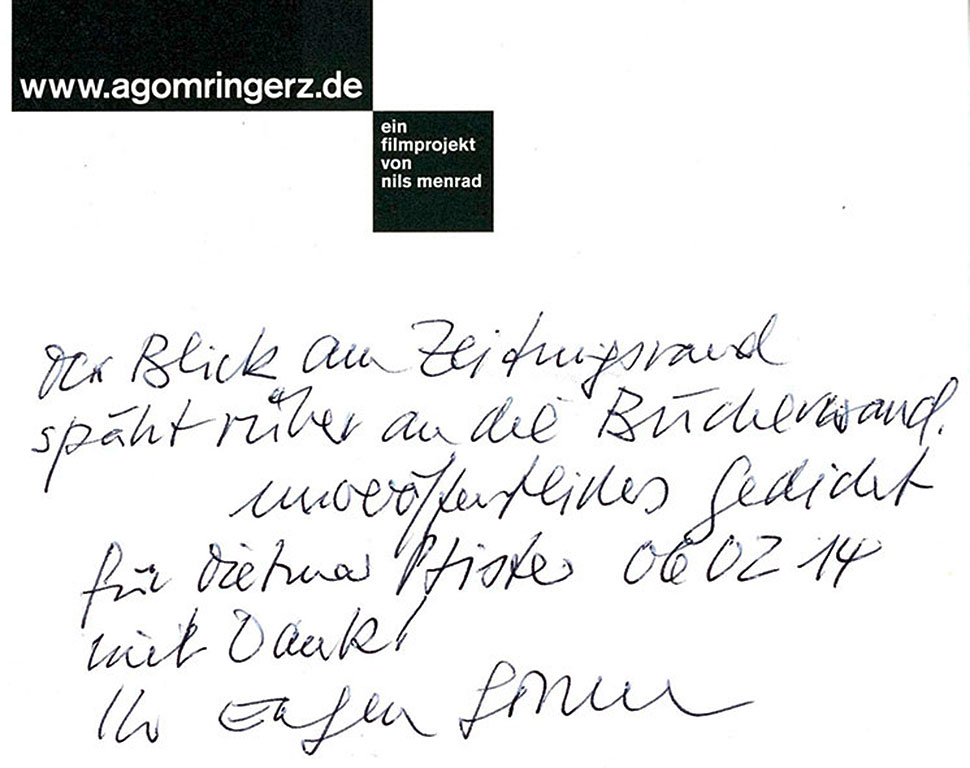 www.agomringerz.de
ein
filmprojekt
von
nils menrad
Der Blick am Zeitungsrand
späht rüber an die Bücherwand.
unveröffentlichtes Gedicht
für Dietmar Pfister 06 02 14
mit Dank!
Ihr Eugen Gomringer